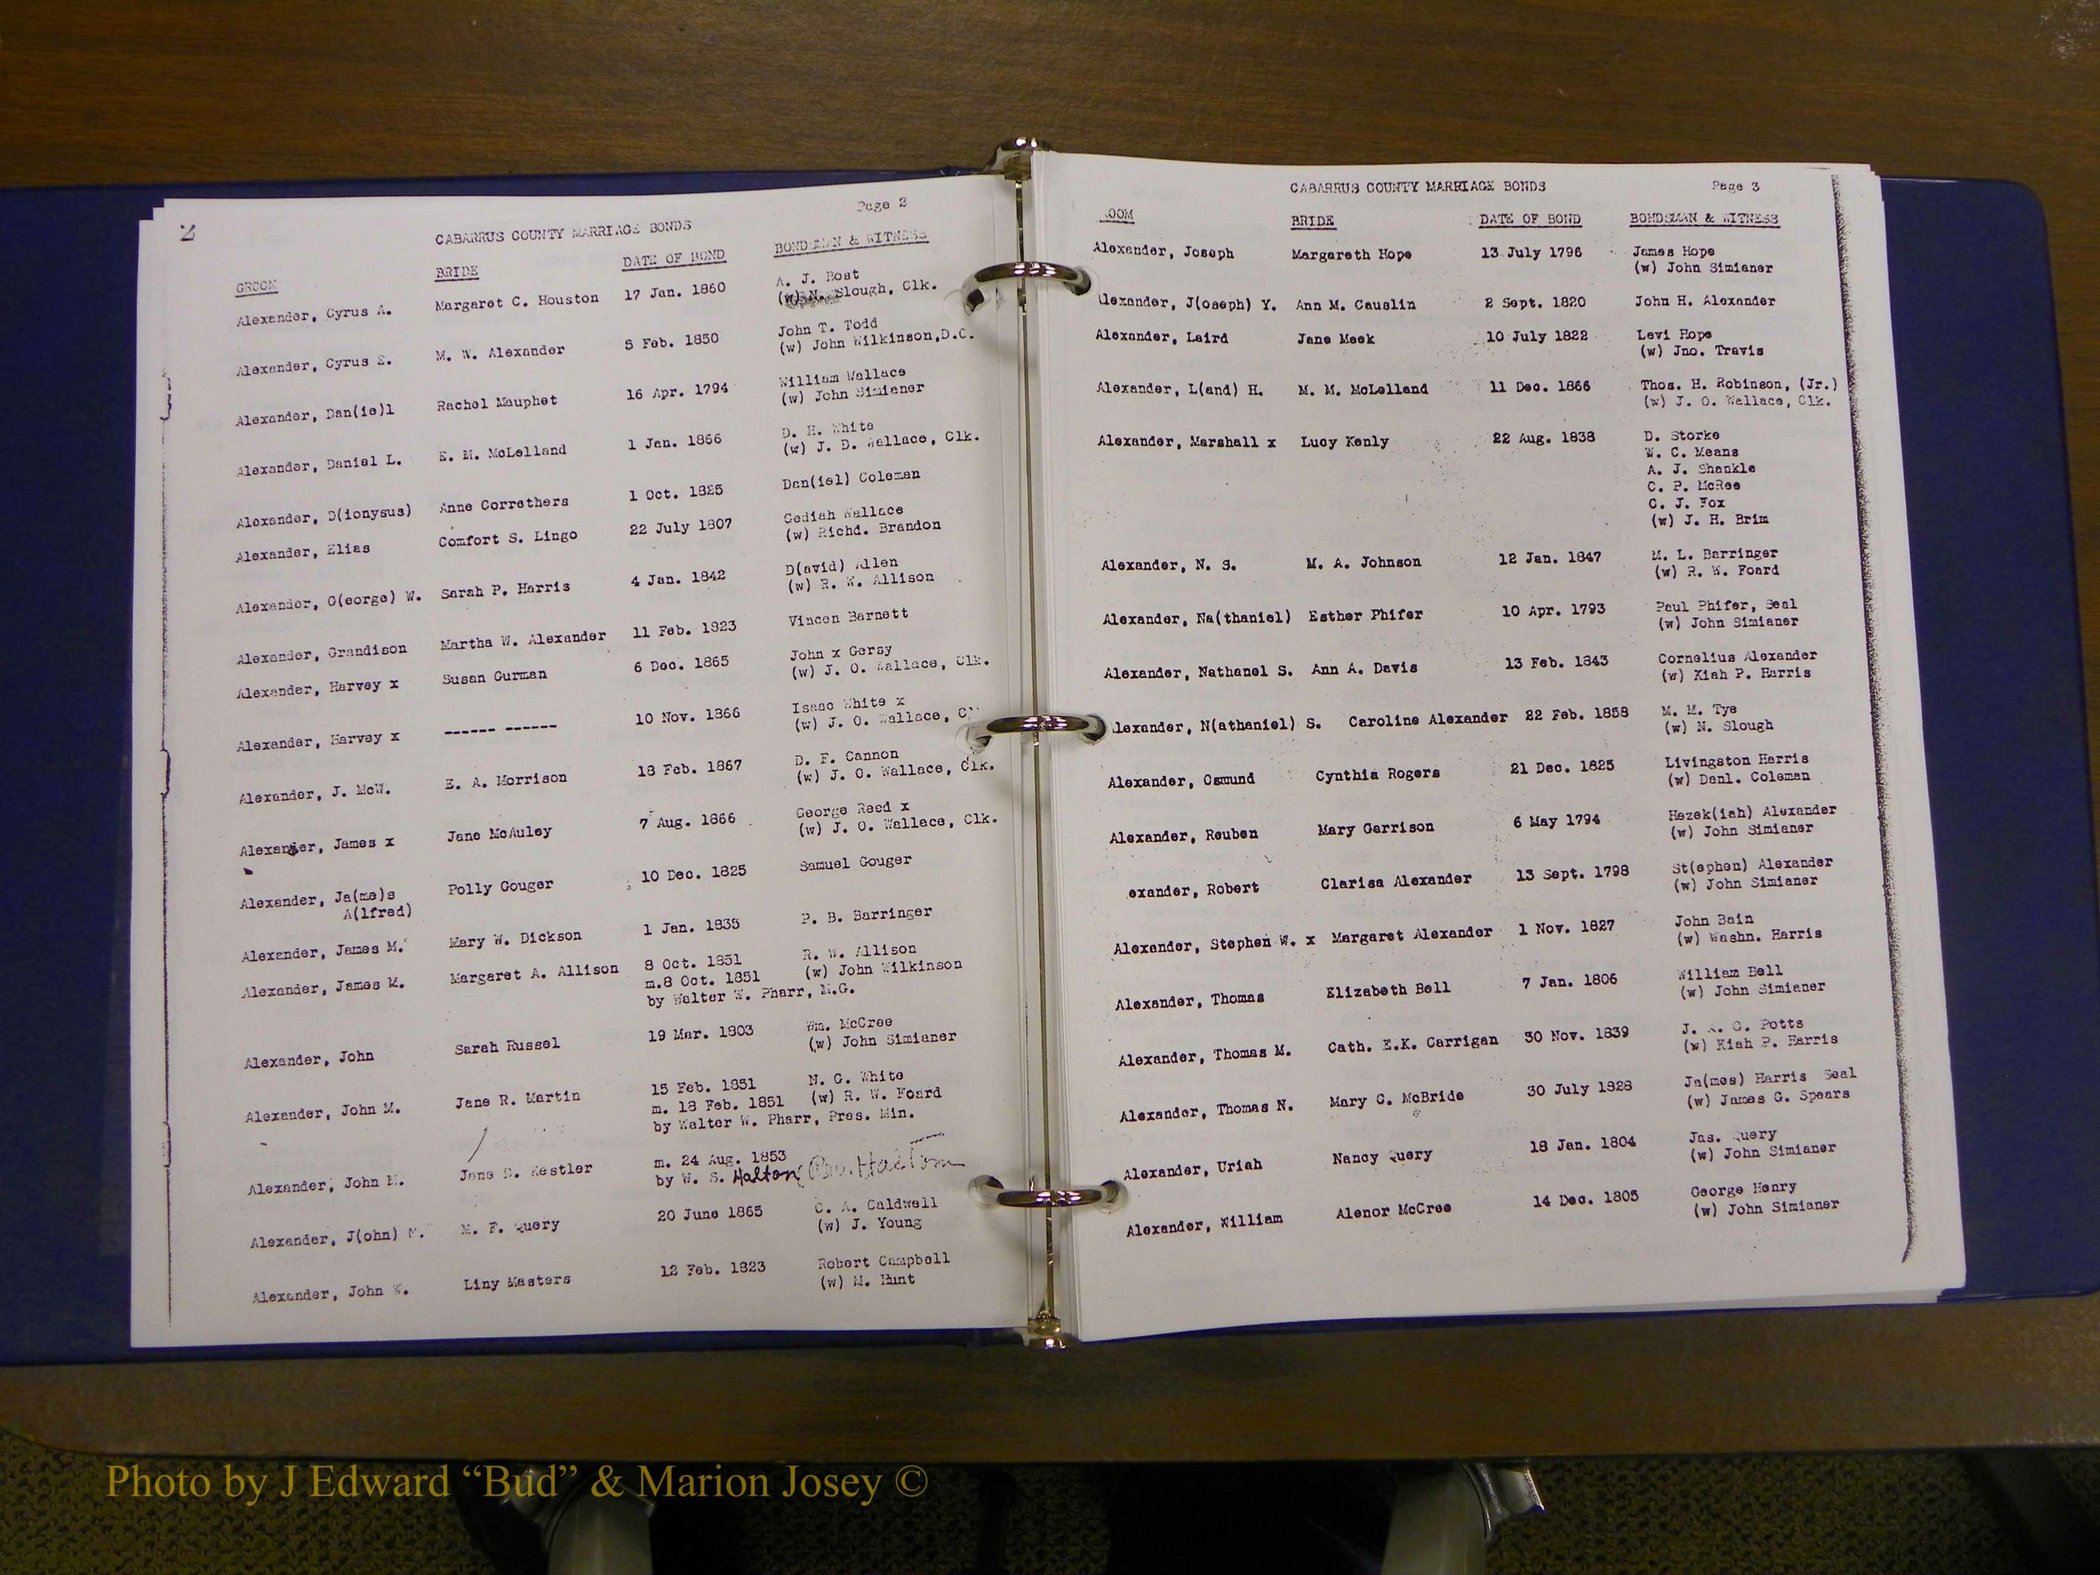 2
CABARRUS COUNTY MARRIAGE BONDS Page 2
GROOM BRIDE DATE OF BOND BONDSMAN & WITNESS
Alexander, Cyrus A. Margaret C. Houston 17 Jan. 1860 A. J. Bost
(w) N. Slough, Clk.
Alexander, Cyrus E. M. W. Alexander 5 Feb. 1850 John T. Todd
(w) John Wilkinson,D.C.
Alexander, Dan(ie)l Rachel Mauphet 16 Apr. 1794 William Wallace
(w) John Simianer
Alexander, Daniel L. E. M. McLelland 1 Jan. 1866 D. H. White
(w) J. D. Wallace, Clk.
Alexander, D(ionysus) Anne Correthers 1 Oct. 1825 Dan(iel) Coleman
Alexander, Elias Comfort S. Lingo 22 July 1807 Gediah Wallace
(w) Richd. Brandon
Alexander, G(eorge) W. Sarah P. Harris 4 Jan. 1842 D(avid) Allen
(w) R. W. Allison
Alexander, Grandison Martha W. Alexander 11 Feb. 1823 Vincen Barnett
Alexander, Harvey x Susan Gurman 6 Dec. 1865 John x Gersy
(w) J. O. Wallace, Clk.
Alexander, Harvey x ------ ------ 10 Nov. 1866 Isaac White x
(w) J. O. Wallace, C
Alexander, J. McW. E. A. Morrison 18 Feb. 1867 D. F. Cannon
(w) J. O. Wallace, Clk.
Alexander, James x Jane McAuley 7 Aug. 1866 George Reed x
(w) J. O. Wallace, Clk.
Alexander, Ja(me)s Polly Gouger 10 Dec. 1825 Samuel Gouger
A(lfred)
Alexander, James M. Mary W. Dickson 1 Jan. 1835 P. B. Barringer
Alexander, James M. Margaret A. Allison 8 Oct. 1851 R. W. Allison
m.8 Oct. 1851 (w) John Wilkinson
by Walter W. Pharr, M.G.
Alexander, John Sarah Russel 19 Mar. 1803 Wm. McCree
(w) John Simianer
Alexander, John M. Jane R. Martin 15 Feb. 1851 N. G. White
m. 18 Feb. 1851 (w) R. W. Foard
by Walter W. Pharr, Pres. Min.
Alexander, John M. Jane D. Kestler m. 24 Aug. 1853
by W. S. Halton
Alexander, J(ohn) M. M. F. Query 20 June 1865 C. A. Caldwell
(w) J. Young
Alexander, John W. Liny Masters 12 Feb. 1823 Robert Campbell
(w) M. Hunt
CABARRUS COUNTY MARRIAGE BONDS Page 3
ROOM BRIDE DATE OF BOND BONDSMAN & WITNESS
Alexander, Joseph Margareth Hope 13 July 1796 James Hope
(w) John Simianer
Alexander, J(oseph) Y. Ann M. Causlin 2 Sept. 1820 John H. Alexander
Alexander, Laird Jane Meek 10 July 1822 Levi Hope
(w) Jno. Travis
Alexander, L(and) H. M. M. McLelland 11 Dec. 1866 Thos. H. Robinson, (Jr.)
(w) J. O. Wallace, Clk.
Alexander, Marshall x Lucy Kenly 22 Aug. 1838 D. Storke
W. C. Means
A. J. Shankle
C. P. McRee
C. J. Fox
(w) J. H. Brim
Alexander, N. S. M. A. Johnson 12 Jan. 1847 M. L. Barringer
(w) R. W. Foard
Alexander, Na(thaniel) Esther Phifer 10 Apr. 1793 Paul Phifer, Seal
(w) John Simianer
Alexander, Nathanel S. Ann A. Davis 13 Feb. 1843 Cornelius Alexander
(w) Kiah P. Harris
Alexander, N(athaniel) S. Caroline Alexander 22 Feb. 1858 M. M. Tye
(w) N. Slough
Alexander, Osmund Cynthia Rogers 21 Dec. 1825 Livingston Harris
(w) Danl. Coleman
Alexander, Reuben Mary Garrison 6 May 1794 Hezek(iah) Alexander
(w) John Simianer
exander, Robert Clarisa Alexander 13 Sept. 1798 St(ephen) Alexander
(w) John Simianer
Alexander, Stephen W. x Margaret Alexander 1 Nov. 1827 John Bain
(w) Washn. Harris
Alexander, Thomas Elizabeth Bell 7 Jan. 1806 William Bell
(w) John Simianer
Alexander, Thomas M. Cath. E.K. Carrigan 30 Nov. 1839 J. O. Potts
(w) Kiah P. Harris
Alexander, Thomas N. Mary C. McBride 30 July 1828 Ja(mes) Harris Seal
(w) James G. Spears
Alexander, Uriah Nancy Query 18 Jan. 1804 Jas. Query
(w) John Simianer
Alexander, William Alenor McCree 14 Dec. 1805 George Henry
(w) John Simianer
Photo by J Edward “Bud” & Marion Josey ©